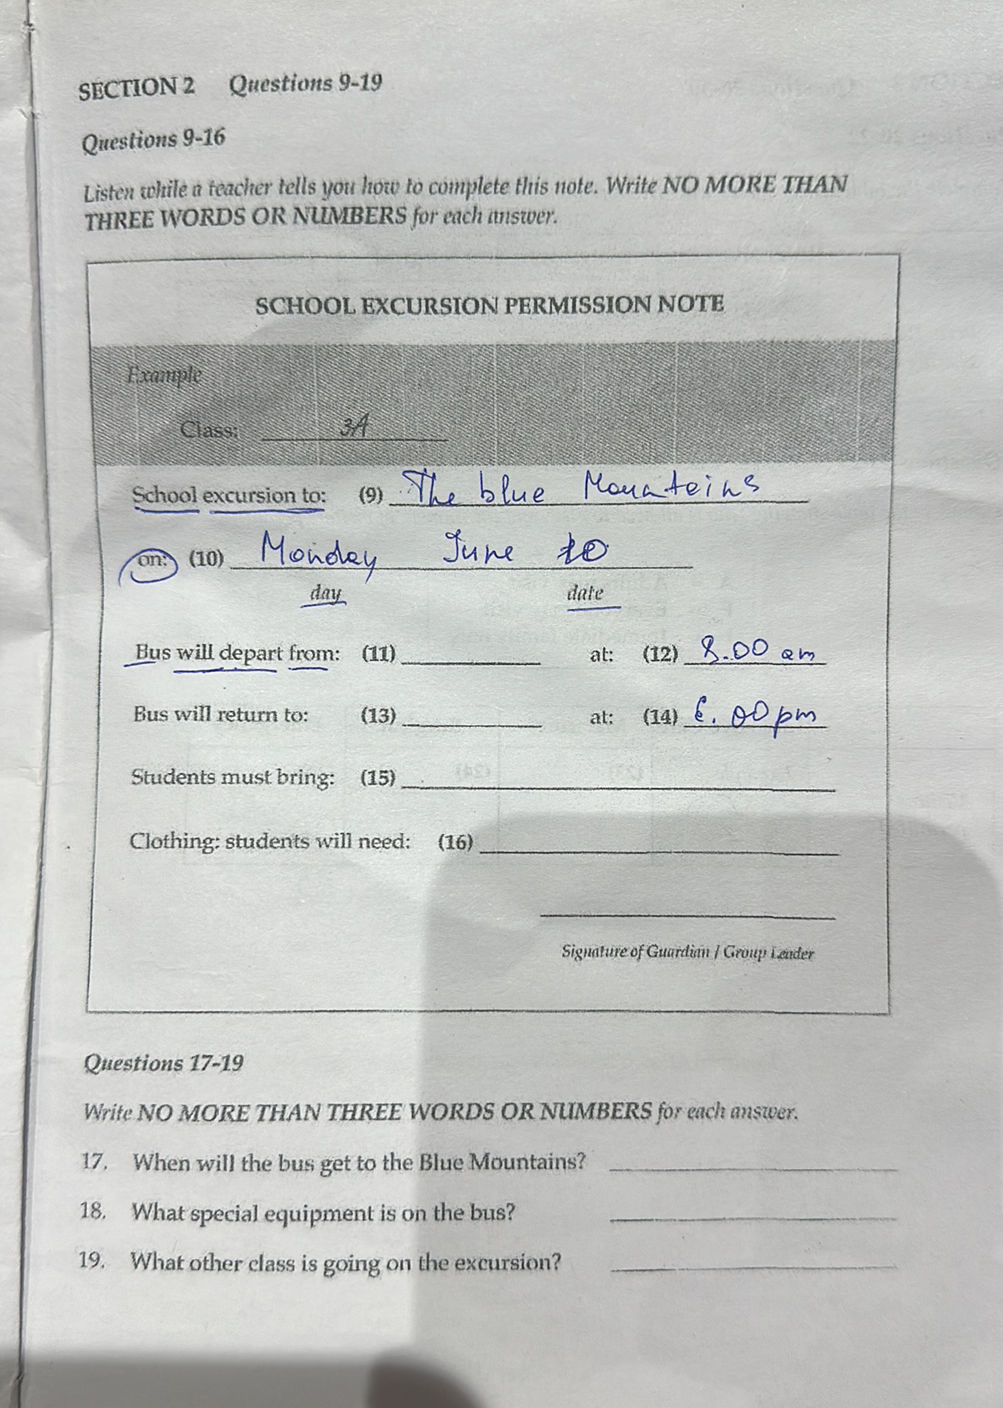 SECTION 2 Questions 9-19
Questions 9-16
Listen while a teacher tells you how to complete this note. Write NO MORE THAN
THREE WORDS OR NUMBERS for each answer.
SCHOOL EXCURSION PERMISSION NOTE
Example
Class: 3A
School excursion to: (9) The blue Mountains
on: (10) Monday June 10
day date
Bus will depart from: (11) at: (12) 8.00 am
Bus will return to: (13) at: (14) 6.00 pm
Students must bring: (15)
Clothing: students will need: (16)
Signature of Guardian / Group Leader
Questions 17-19
Write NO MORE THAN THREE WORDS OR NUMBERS for each answer.
17. When will the bus get to the Blue Mountains?
18. What special equipment is on the bus?
19. What other class is going on the excursion?